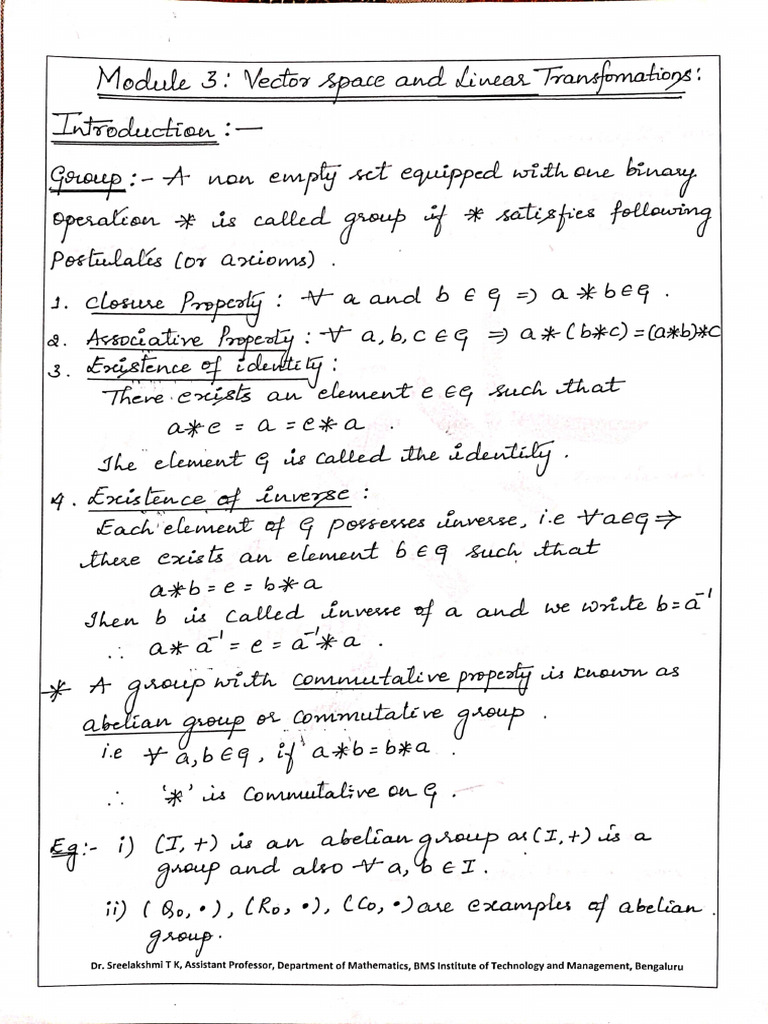 Module 3: Vector space and Linear Transfomations:
Introduction :—
Group :- A non empty set equipped with one binary
operation * is called group if * satisfies following
Postulates (or axioms) .
1. Closure Property : ∀ a and b ∈ G ⇒ a * b ∈ G .
2. Associative Property : ∀ a, b, c ∈ G ⇒ a * (b*c) = (a*b)*c
3. Existence of identity :
There exists an element e ∈ G such that
a*e = a = e*a .
The element G is called the identity .
4. Existence of inverse :
Each element of G possesses inverse, i.e ∀a∈G ⇒
there exists an element b ∈ G such that
a*b = e = b*a
Then b is called inverse of a and we write b = a⁻¹
∴ a* a⁻¹ = e = a⁻¹* a .
* A group with commutative property is known as
abelian group or commutative group .
i.e ∀ a, b ∈ G , if a*b = b*a .
∴ '*' is commutative on G .
Eg:- i) (I, +) is an abelian group as (I, +) is a
group and also ∀ a, b ∈ I .
ii) (Q₀, •) , (R₀, •), (C₀, •) are examples of abelian
group.
Dr. Sreelakshmi T K, Assistant Professor, Department of Mathematics, BMS Institute of Technology and Management, Bengaluru